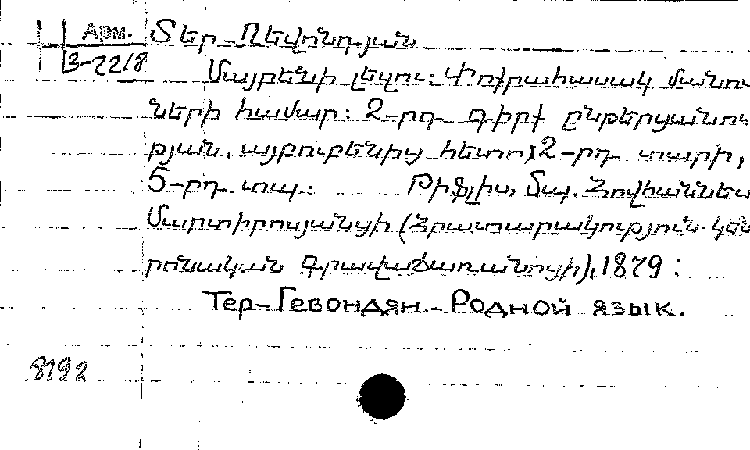 Арм.
3-2218
Տեր-Ղևոնդյան
Մայրենի լեզու: Փոքրահասակ մանու
ների համար: 2-րդ գիրք ընթերցանու
թյան, այբուբենից հետո, 2-րդ տարի,
5-րդ տպ. Թիֆլիս, տպ. Հովհաննես
Մարտիրոսյանցի (Հրատարակություն կեն
րոնական գրավաճառանոցի), 1879:
Тер-Гевондян - Родной язык.
8192